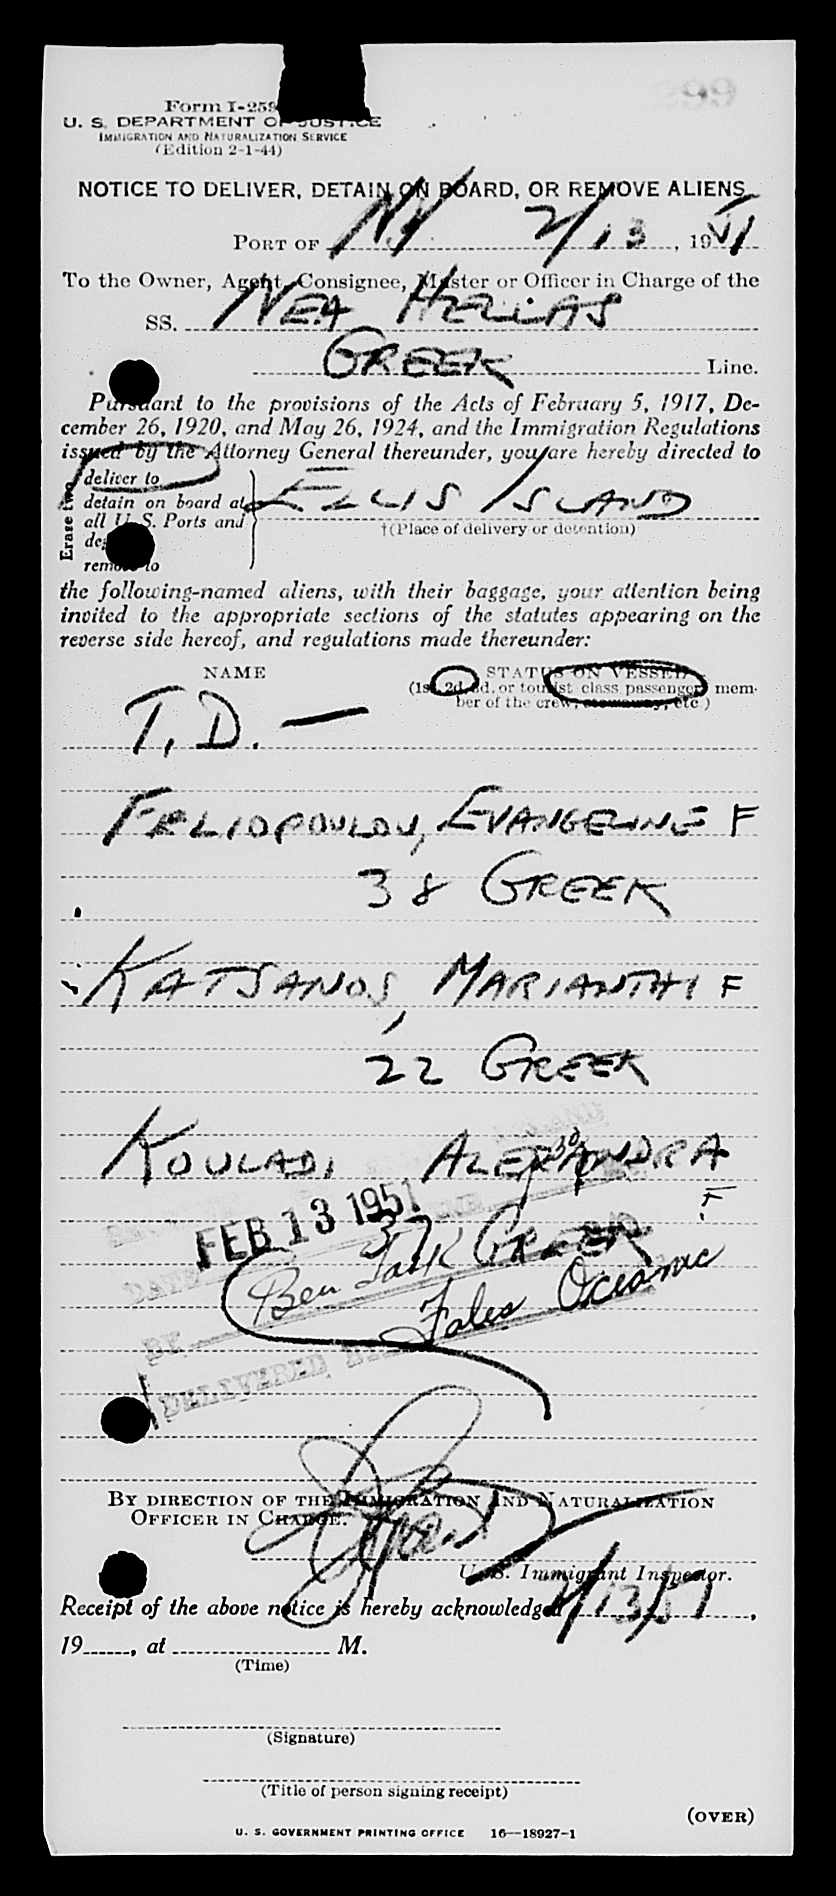 Form I-259
U. S. DEPARTMENT OF JUSTICE
IMMIGRATION AND NATURALIZATION SERVICE
(Edition 2-1-44)
NOTICE TO DELIVER, DETAIN ON BOARD, OR REMOVE ALIENS
PORT OF NY 2/13, 1951
To the Owner, Agent, Consignee, Master or Officer in Charge of the
SS. NEA HELLAS
GREEK Line.
Pursuant to the provisions of the Acts of February 5, 1917, De-
cember 26, 1920, and May 26, 1924, and the Immigration Regulations
issued by the Attorney General thereunder, you are hereby directed to
Erase two
deliver to
detain on board at
all U. S. Ports and
remove to
ELLIS ISLAND
†(Place of delivery or detention)
the following-named aliens, with their baggage, your attention being
invited to the appropriate sections of the statutes appearing on the
reverse side hereof, and regulations made thereunder:
NAME STATUS ON VESSEL
(1st, 2d, 3d, or tourist class passenger, mem-
ber of the crew, stowaway, etc.)
T.D. —
FELIOPOULOU, EVANGELINE F
38 GREEK
KATSANOS, MARIANTHI F
22 GREEK
KOULADI ALEXANDRA
F
FEB 13 1951
37 GREEK
Ben
Fales Oceanic
BY
DELIVERED
BY DIRECTION OF THE IMMIGRATION AND NATURALIZATION
OFFICER IN CHARGE.
U. S. Immigrant Inspector.
Receipt of the above notice is hereby acknowledged 2/13/51,
19___, at ___ M.
(Time)
(Signature)
(Title of person signing receipt)
(OVER)
U. S. GOVERNMENT PRINTING OFFICE 16—18927-1